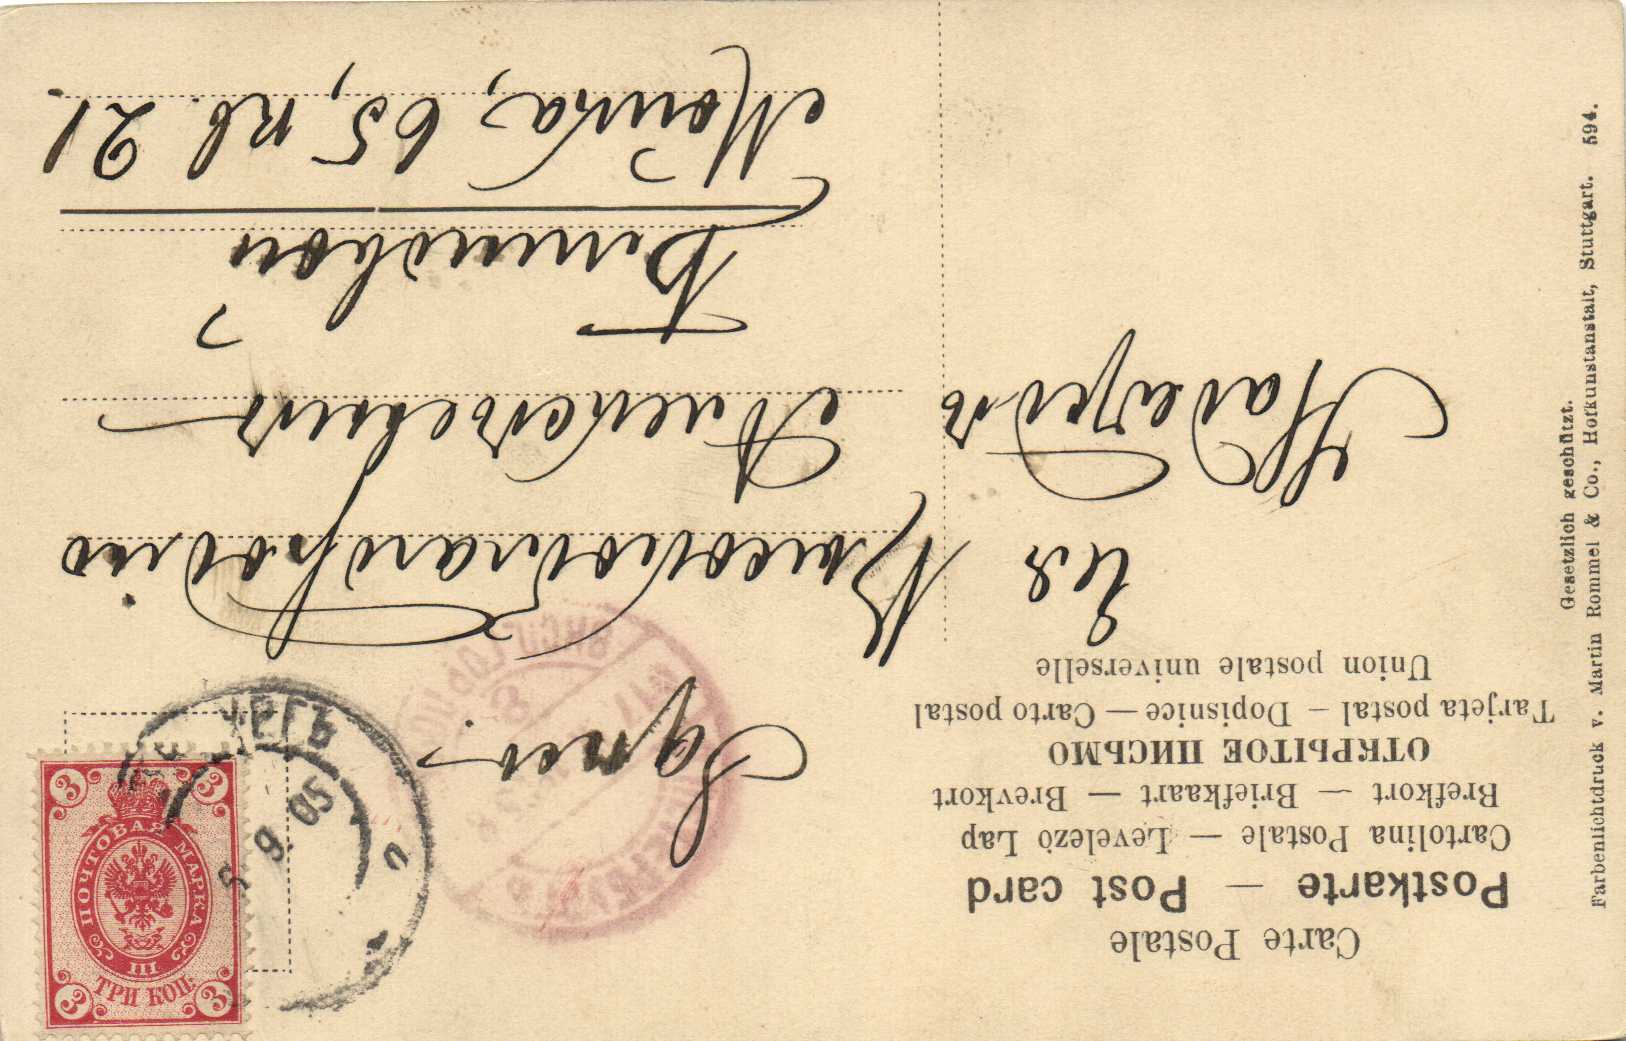 Carte Postale
Postkarte — Post card
Cartolina Postale — Levelezö Lap
Brefkort — Briefkaart — Brevkort
ОТКРЫТОЕ ПИСЬМО
Tarjeta postal — Dopisnice — Carto postal
Union postale universelle
3 3
ПОЧТОВАЯ МАРКА
III
ТРИ КОП.
3 3
5 9 05
Здѣсь.
Ея Высокоблагородію
Надеждѣ Алексѣевнѣ
Мойка, 65, кв. 21.
Gesetzlich geschützt.
Farbenlichtdruck v. Martin Rommel & Co., Hofkunstanstalt, Stuttgart. 594.